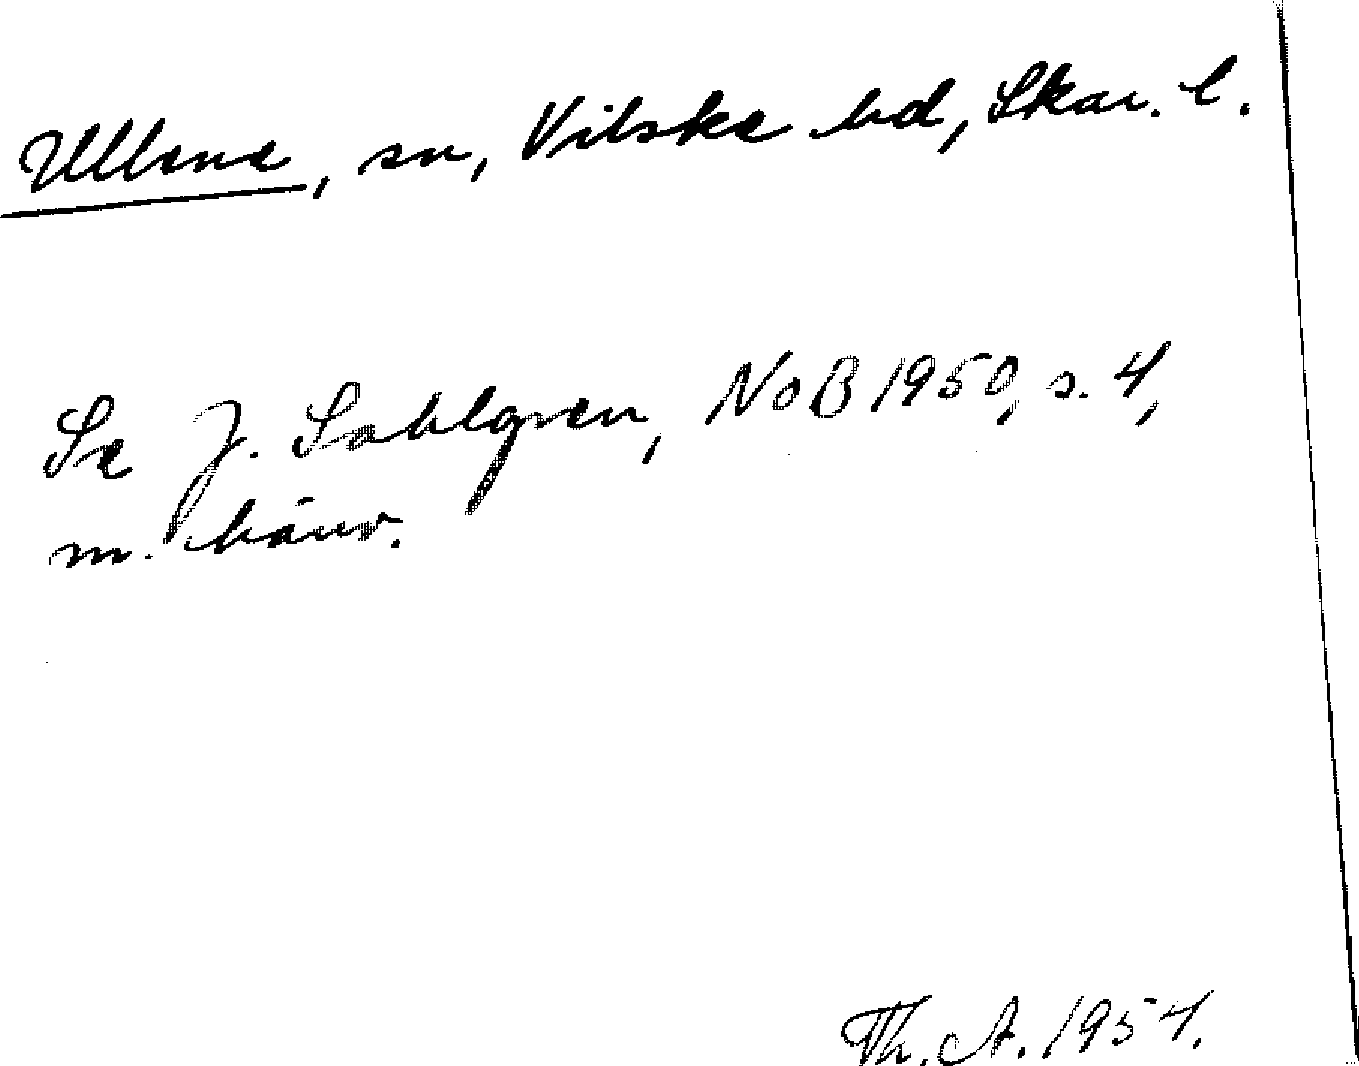 Ullene, sn, Vilske hd, Skar. l.
Se J. Sahlgren, NoB 1950, s. 4,
m. hänv.
Th. A. 1954.